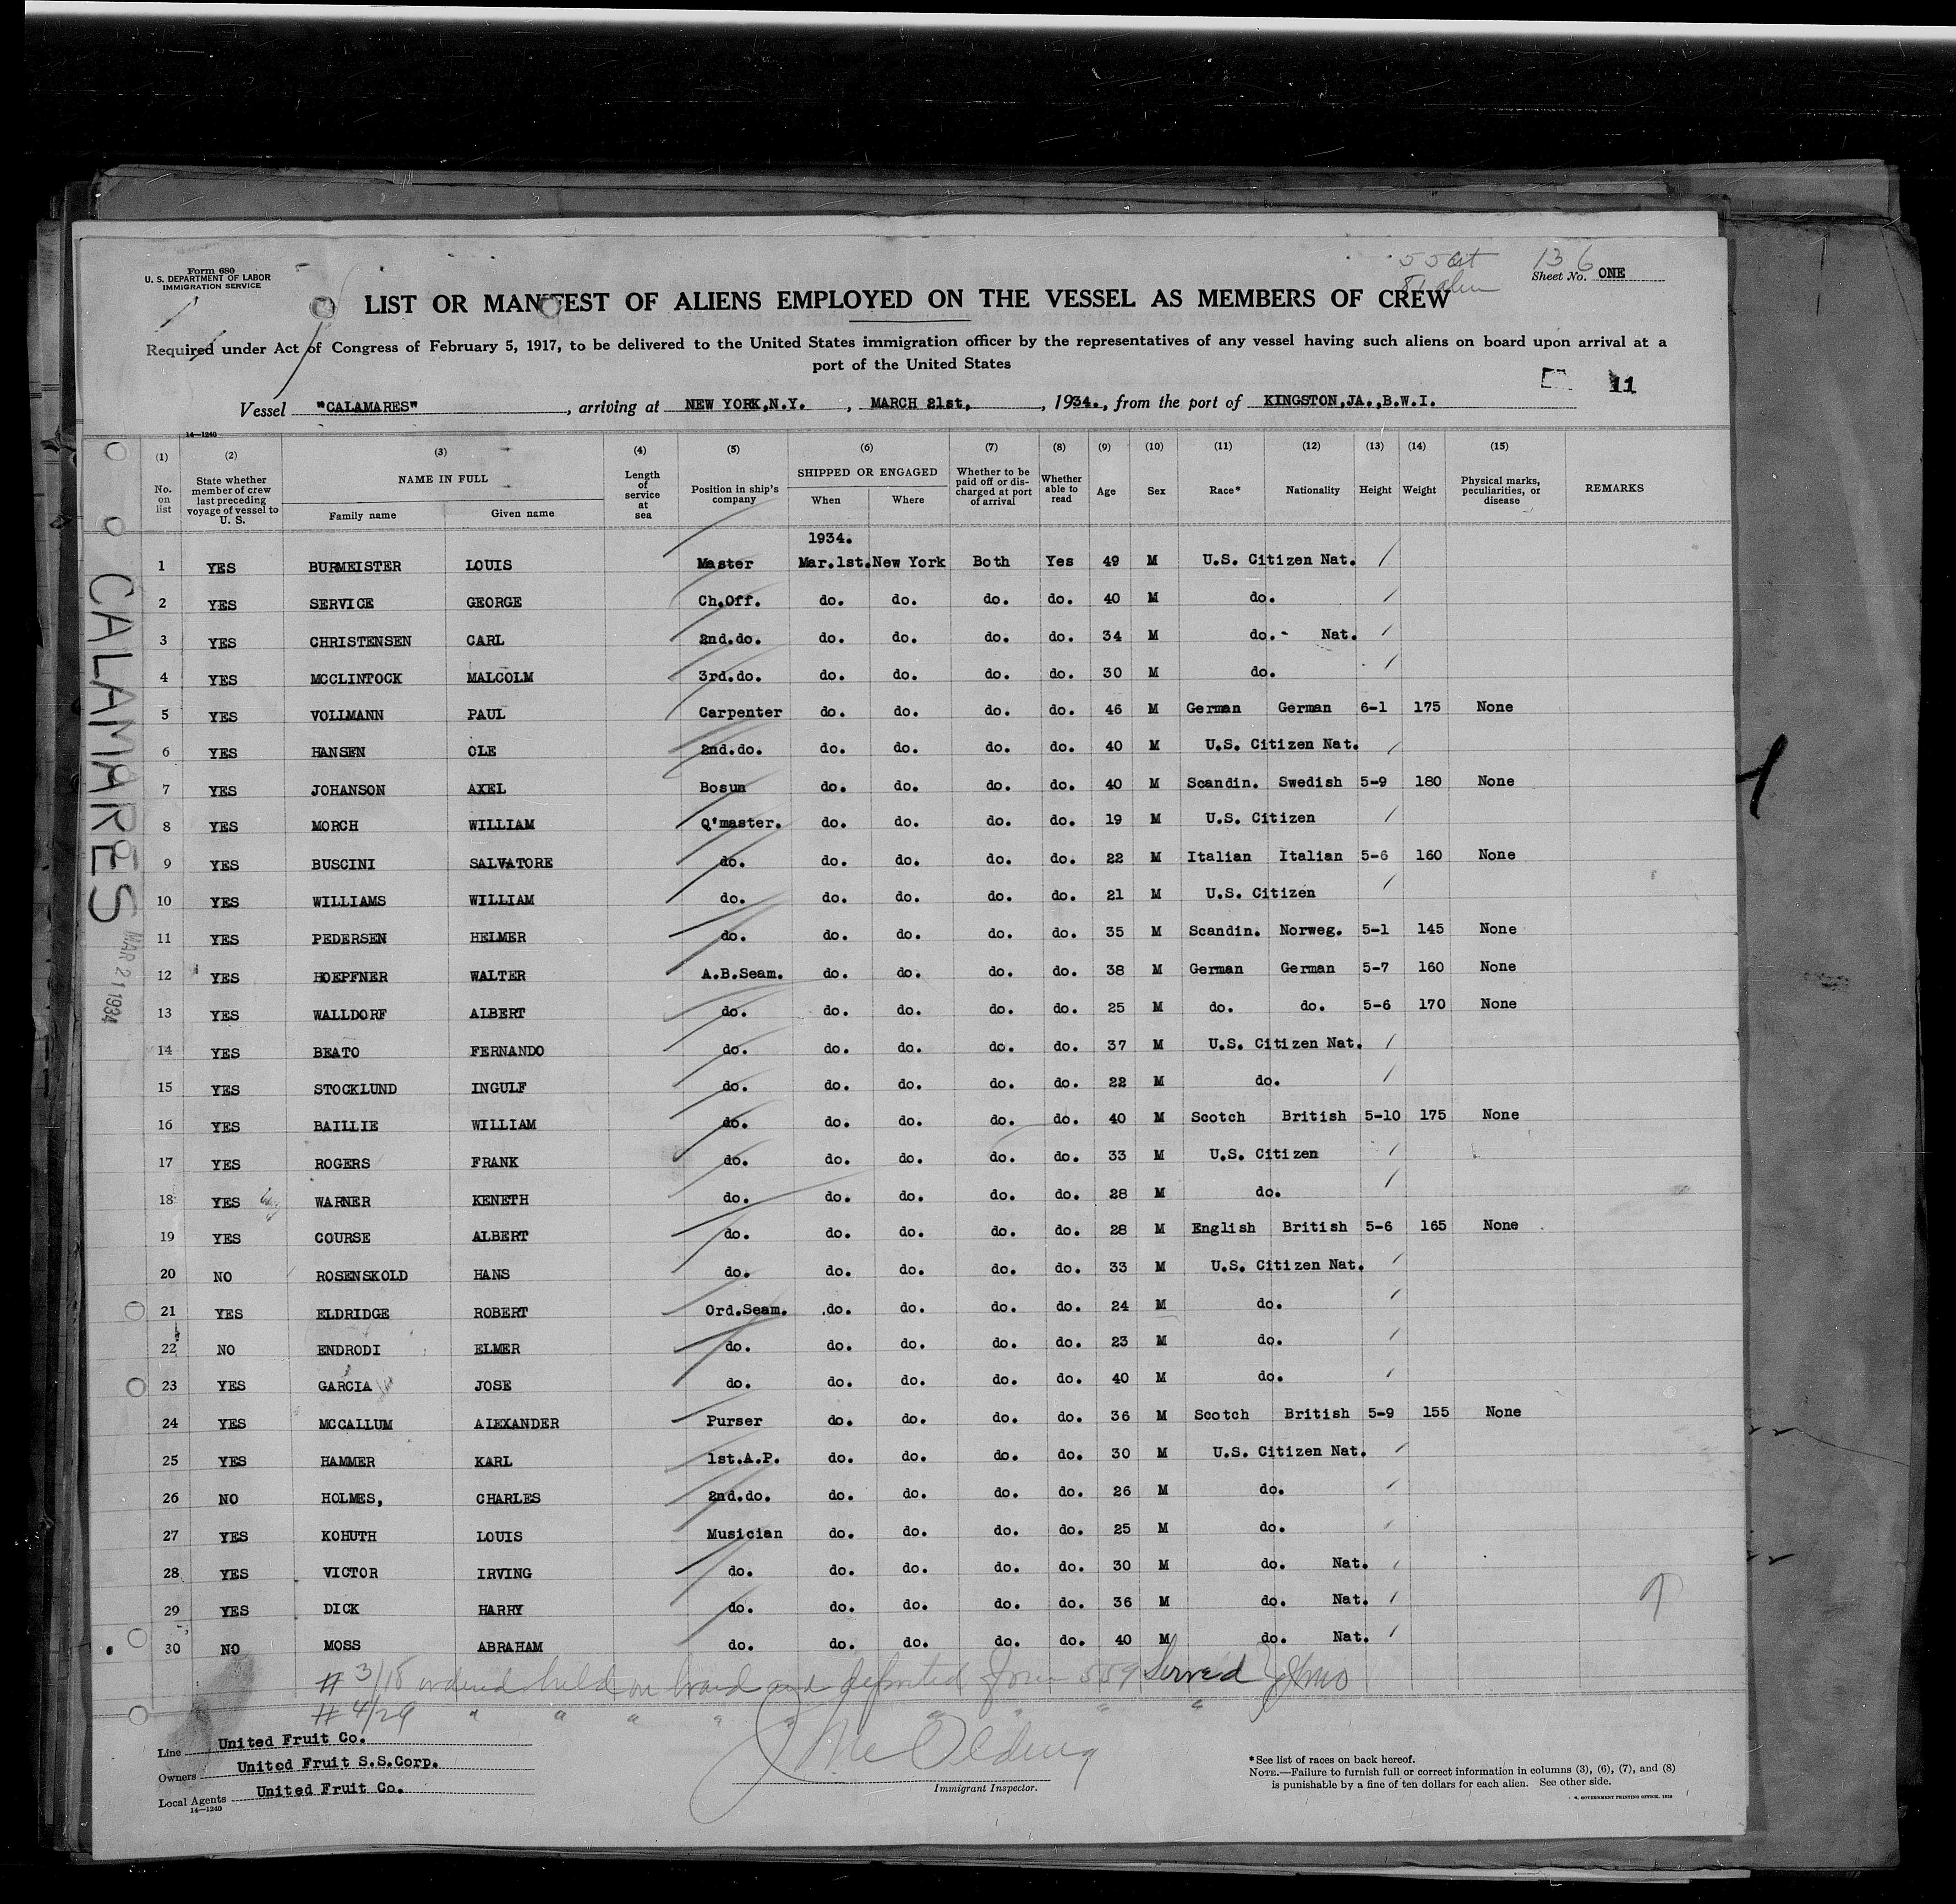 Form 680
U. S. DEPARTMENT OF LABOR
IMMIGRATION SERVICE
13 6
Sheet No. ONE
LIST OR MANIFEST OF ALIENS EMPLOYED ON THE VESSEL AS MEMBERS OF CREW
Required under Act of Congress of February 5, 1917, to be delivered to the United States immigration officer by the representatives of any vessel having such aliens on board upon arrival at a
port of the United States
11
Vessel "CALAMARES", arriving at NEW YORK,N.Y., MARCH 21st, , 1934., from the port of KINGSTON,JA.,B.W.I.
14—1240
(1) (2) (3) (4) (5) (6) (7) (8) (9) (10) (11) (12) (13) (14) (15)
No. on list State whether member of crew last preceding voyage of vessel to U. S. NAME IN FULL Family name Given name Length of service at sea Position in ship's company SHIPPED OR ENGAGED When Where Whether to be paid off or discharged at port of arrival Whether able to read Age Sex Race* Nationality Height Weight Physical marks, peculiarities, or disease REMARKS
1934.
1 YES BURMEISTER LOUIS Master Mar.1st. New York Both Yes 49 M U.S. Citizen Nat.
2 YES SERVICE GEORGE Ch.Off. do. do. do. do. 40 M do.
3 YES CHRISTENSEN CARL 2nd.do. do. do. do. do. 34 M do.- Nat.
4 YES MCCLINTOCK MALCOLM 3rd.do. do. do. do. do. 30 M do.
5 YES VOLLMANN PAUL Carpenter do. do. do. do. 46 M German German 6-1 175 None
6 YES HANSEN OLE 2nd.do. do. do. do. do. 40 M U.S. Citizen Nat.
7 YES JOHANSON AXEL Bosun do. do. do. do. 40 M Scandin. Swedish 5-9 180 None
8 YES MORCH WILLIAM Q'master. do. do. do. do. 19 M U.S. Citizen
9 YES BUSCINI SALVATORE do. do. do. do. do. 22 M Italian Italian 5-6 160 None
10 YES WILLIAMS WILLIAM do. do. do. do. do. 21 M U.S. Citizen
11 YES PEDERSEN HELMER do. do. do. do. do. 35 M Scandin. Norweg. 5-1 145 None
12 YES HOEPFNER WALTER A.B.Seam. do. do. do. do. 38 M German German 5-7 160 None
13 YES WALLDORF ALBERT do. do. do. do. do. 25 M do. do. 5-6 170 None
14 YES BEATO FERNANDO do. do. do. do. do. 37 M U.S. Citizen Nat.
15 YES STOCKLUND INGULF do. do. do. do. do. 22 M do.
16 YES BAILLIE WILLIAM do. do. do. do. do. 40 M Scotch British 5-10 175 None
17 YES ROGERS FRANK do. do. do. do. do. 33 M U.S. Citizen
18 YES WARNER KENETH do. do. do. do. do. 28 M do.
19 YES COURSE ALBERT do. do. do. do. do. 28 M English British 5-6 165 None
20 NO ROSENSKOLD HANS do. do. do. do. do. 33 M U.S. Citizen Nat.
21 YES ELDRIDGE ROBERT Ord.Seam. do. do. do. do. 24 M do.
22 NO ENDRODI ELMER do. do. do. do. do. 23 M do.
23 YES GARCIA JOSE do. do. do. do. do. 40 M do.
24 YES MCCALLUM ALEXANDER Purser do. do. do. do. 36 M Scotch British 5-9 155 None
25 YES HAMMER KARL 1st.A.P. do. do. do. do. 30 M U.S. Citizen Nat.
26 NO HOLMES, CHARLES 2nd.do. do. do. do. do. 26 M do.
27 YES KOHUTH LOUIS Musician do. do. do. do. 25 M do.
28 YES VICTOR IRVING do. do. do. do. do. 30 M do. Nat.
29 YES DICK HARRY do. do. do. do. do. 36 M do. Nat.
30 NO MOSS ABRAHAM do. do. do. do. do. 40 M do. Nat.
CALAMARES
MAR 21 1934
# 3/18 ordered held on board and deported form 559 Served
# 4/29 " " " " " " " " "
Line United Fruit Co.
Owners United Fruit S.S.Corp.
Local Agents United Fruit Co.
14—1240
Immigrant Inspector.
*See list of races on back hereof.
NOTE.—Failure to furnish full or correct information in columns (3), (6), (7), and (8)
is punishable by a fine of ten dollars for each alien. See other side.